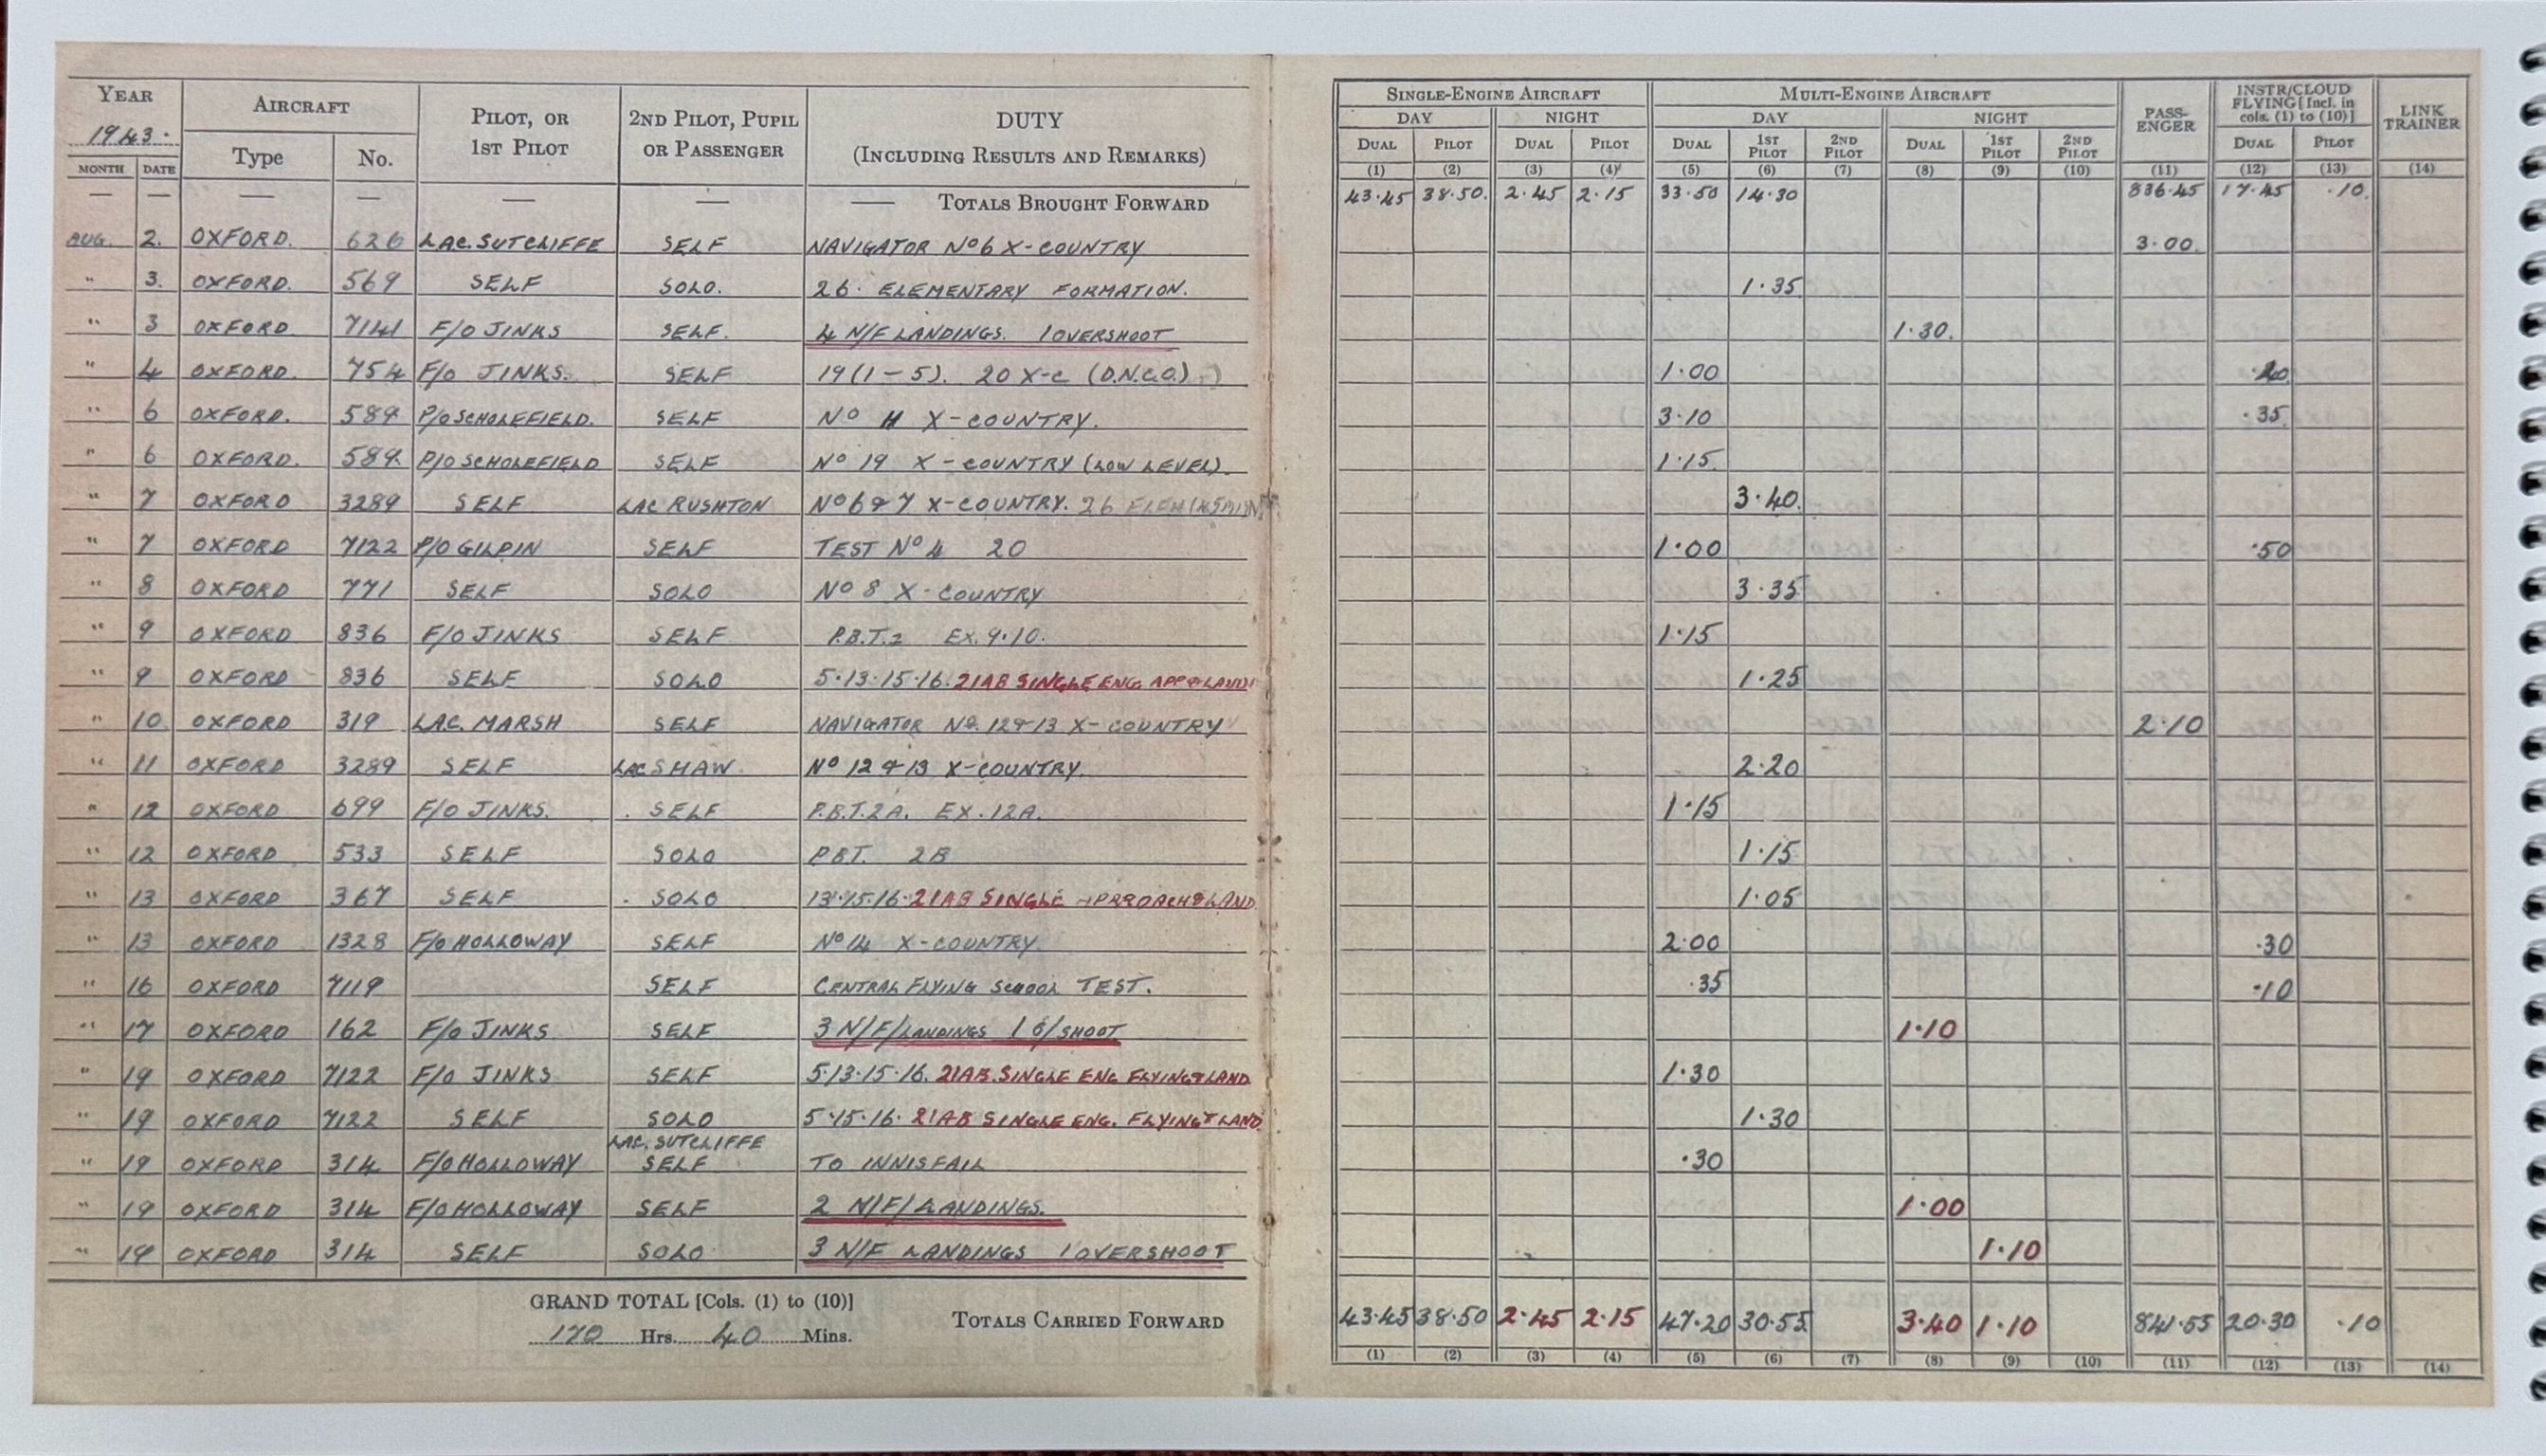 YEAR AIRCRAFT PILOT, OR 1ST PILOT 2ND PILOT, PUPIL OR PASSENGER DUTY (INCLUDING RESULTS AND REMARKS) SINGLE-ENGINE AIRCRAFT MULTI-ENGINE AIRCRAFT PASS-ENGER INSTR/CLOUD FLYING [Incl. in cols. (1) to (10)] LINK TRAINER
1943. DAY NIGHT DAY NIGHT
MONTH DATE Type No. DUAL PILOT DUAL PILOT DUAL 1ST PILOT 2ND PILOT DUAL 1ST PILOT 2ND PILOT DUAL PILOT
(1) (2) (3) (4) (5) (6) (7) (8) (9) (10) (11) (12) (13) (14)
— — — — — — — TOTALS BROUGHT FORWARD 43.45 38.50. 2.45 2.15 33.50 14.30 836.45 17.45 .10.
AUG. 2. OXFORD. 626 LAC. SUTCLIFFE SELF NAVIGATOR No 6 X-COUNTRY 3.00.
" 3. OXFORD. 569 SELF SOLO. 26. ELEMENTARY FORMATION. 1.35
" 3 OXFORD. 7141 F/O JINKS SELF. 4 N/F LANDINGS. 1 OVERSHOOT 1.30.
" 4 OXFORD. 754 F/O JINKS. SELF 19 (1-5). 20 X-C (D.N.C.O.) 1.00
" 6 OXFORD. 589 P/O SCHOLEFIELD. SELF No X-COUNTRY. 3.10 .35
" 6 OXFORD. 589 P/O SCHOLEFIELD SELF No 19 X-COUNTRY (LOW LEVEL). 1.15
" 7 OXFORD 3289 SELF LAC RUSHTON No 6 & 7 X-COUNTRY. 26 ELEM 3.40.
" 7 OXFORD 7122 P/O GILPIN SELF TEST No 4 20 1.00 .50
" 8 OXFORD 771 SELF SOLO No 8 X-COUNTRY 3.35
" 9 OXFORD 836 F/O JINKS SELF P.B.T.2 EX. 9.10. 1.15
" 9 OXFORD 836 SELF SOLO 5.13.15.16. 21AB SINGLE ENG. APP & LAND 1.25
" 10. OXFORD 319 LAC. MARSH SELF NAVIGATOR No. 12 & 13 X-COUNTRY 2.10
" 11 OXFORD 3289 SELF LAC SHAW. No 12 & 13 X-COUNTRY. 2.20
" 12 OXFORD 699 F/O JINKS. SELF P.B.T.2A. EX. 12A. 1.15
" 12 OXFORD 533 SELF SOLO P.B.T. 2B 1.15
" 13 OXFORD 367 SELF SOLO 13.15.16. 21AB SINGLE APPROACH & LAND 1.05
" 13 OXFORD 1328 F/O HOLLOWAY SELF No 14 X-COUNTRY 2.00 .30
" 16 OXFORD 7119 SELF CENTRAL FLYING SCHOOL TEST. .35 .10
" 17 OXFORD 162 F/O JINKS SELF 3 N/F/LANDINGS 1 O/SHOOT 1.10
" 19 OXFORD 7122 F/O JINKS SELF 5.13.15.16. 21AB. SINGLE ENG FLYING & LAND 1.30
" 19 OXFORD 7122 SELF SOLO 5.15.16. 21AB SINGLE ENG. FLYING & LAND 1.30
LAC. SUTCLIFFE
" 19 OXFORD 314 F/O HOLLOWAY SELF TO INNISFAIL .30
" 19 OXFORD 314 F/O HOLLOWAY SELF 2 N/F/LANDINGS. 1.00
" 19 OXFORD 314 SELF SOLO 3 N/F LANDINGS 1 OVERSHOOT 1.10
GRAND TOTAL [Cols. (1) to (10)]
170 Hrs. 40 Mins.
TOTALS CARRIED FORWARD 43.45 38.50 2.45 2.15 47.20 30.55 3.40 1.10 841.55 20.30 .10
(1) (2) (3) (4) (5) (6) (7) (8) (9) (10) (11) (12) (13) (14)